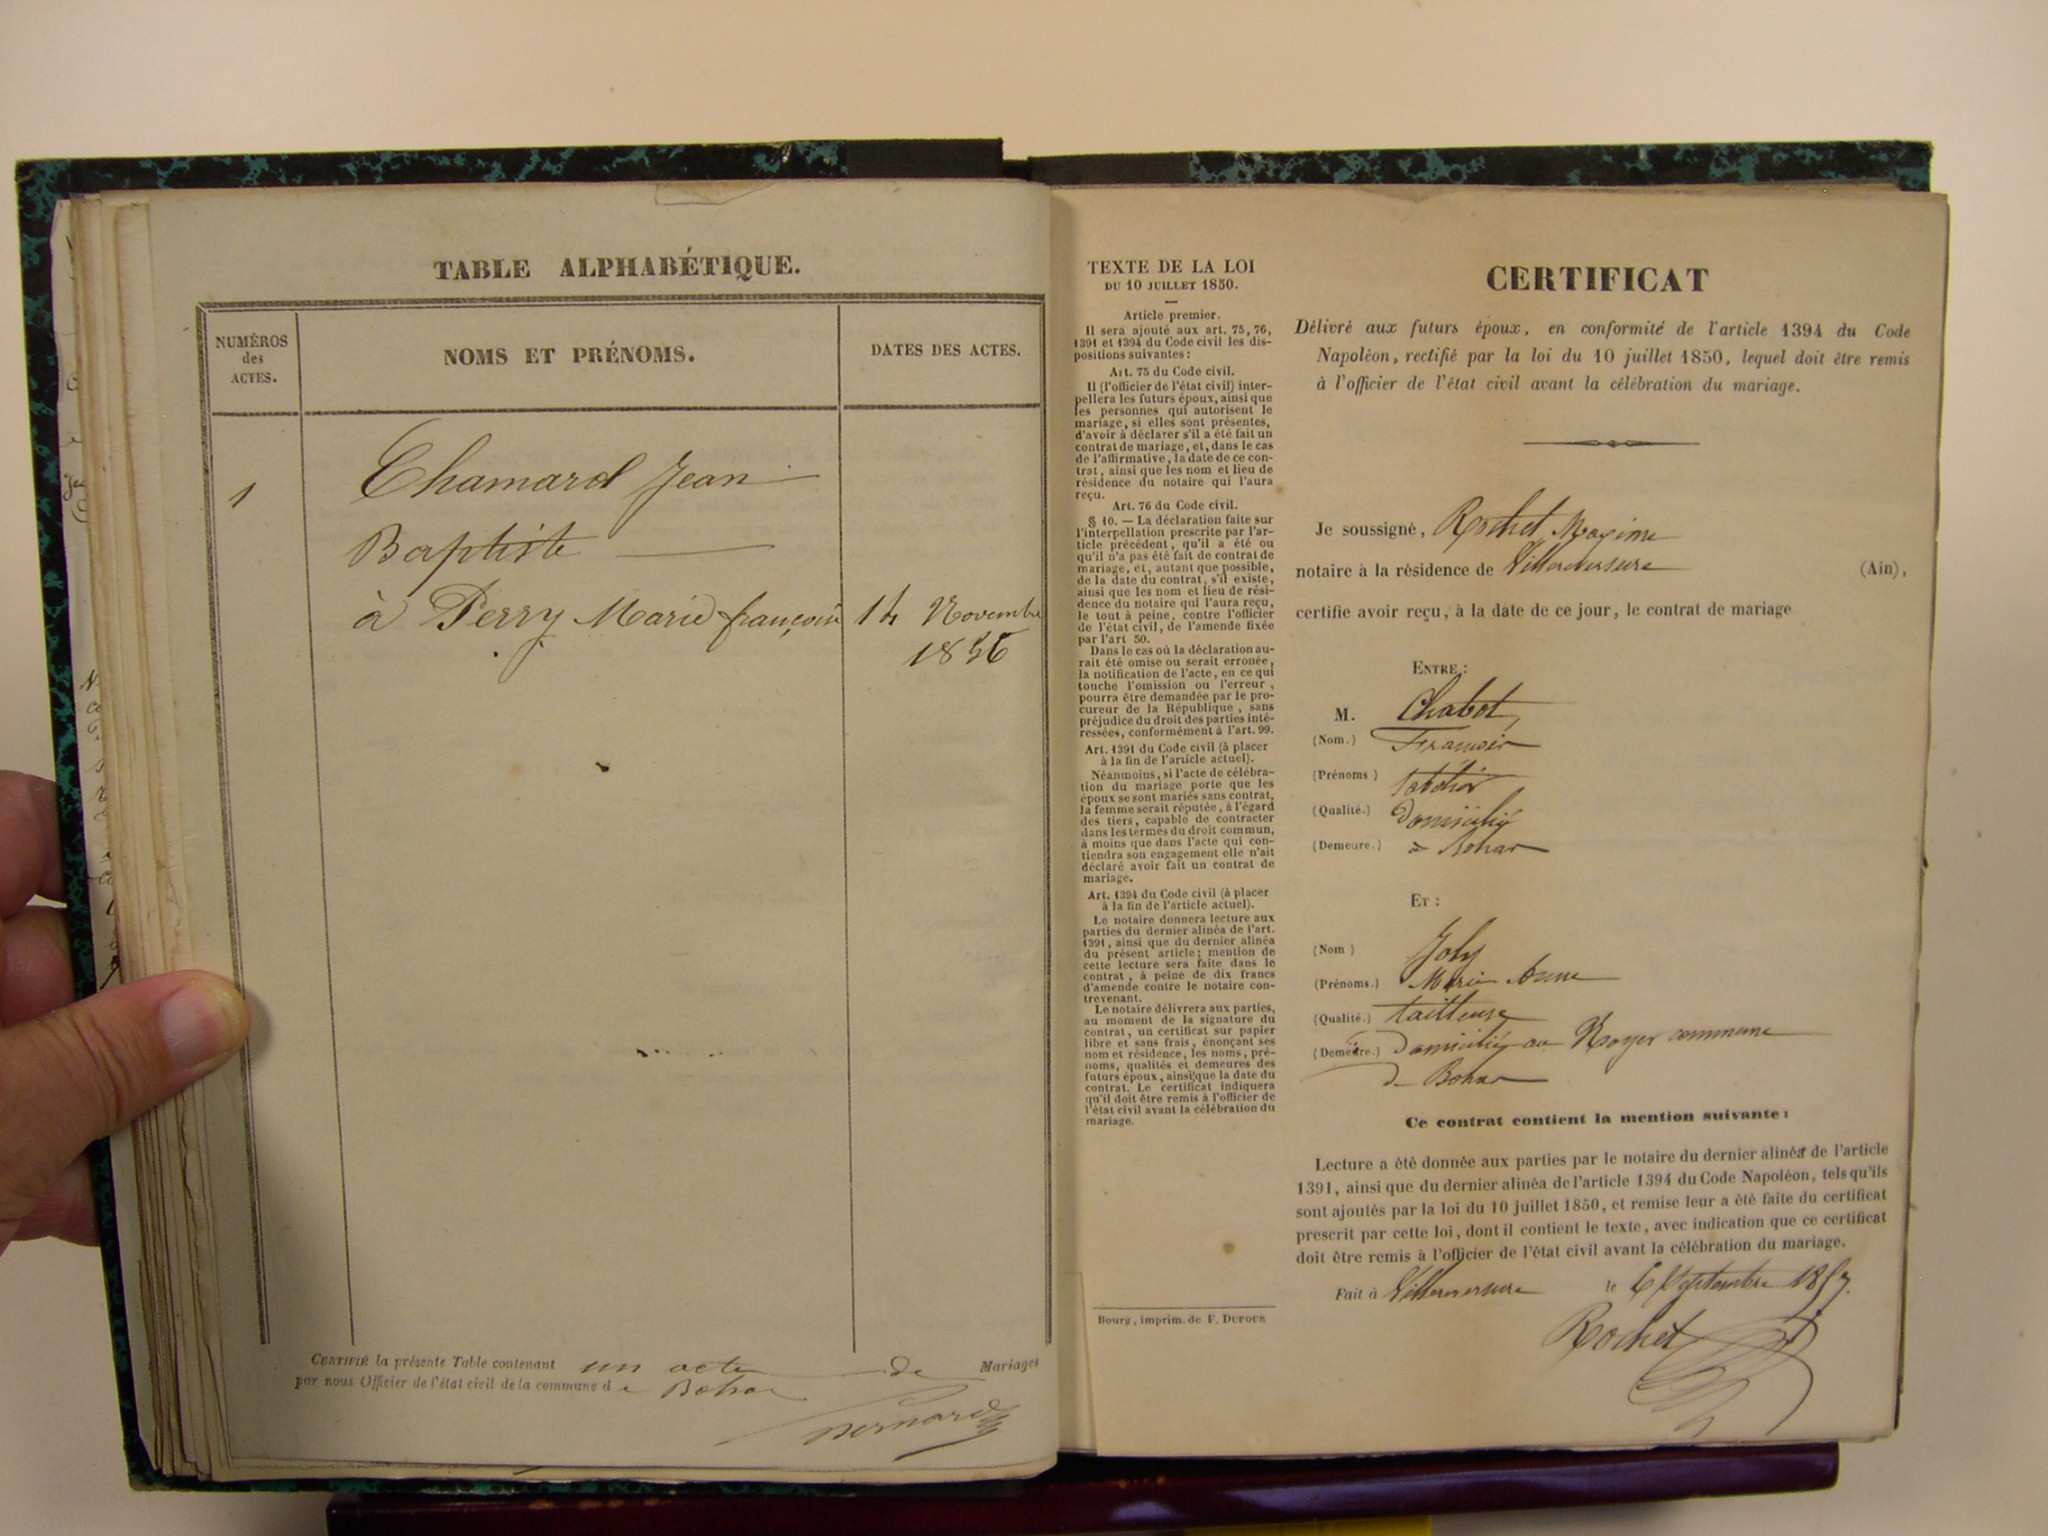 TABLE ALPHABÉTIQUE.
NUMÉROS
des
ACTES.
NOMS ET PRÉNOMS.
DATES DES ACTES.
1
Chamard Jean
Baptiste
à Perry Marie françoise
14 Novembre
1856
CERTIFIÉ la présente Table contenant un acte de Mariages
par nous Officier de l'état civil de la commune de Bohas
Bernard
TEXTE DE LA LOI
DU 10 JUILLET 1850.
Article premier.
Il sera ajouté aux art. 75, 76,
1391 et 1394 du Code civil les dis-
positions suivantes :
Art. 75 du Code civil.
Il (l'officier de l'état civil) inter-
pellera les futurs époux, ainsi que
les personnes qui autorisent le
mariage, si elles sont présentes,
d'avoir à déclarer s'il a été fait un
contrat de mariage, et, dans le cas
de l'affirmative, la date de ce con-
trat, ainsi que les nom et lieu de
résidence du notaire qui l'aura
reçu.
Art. 76 du Code civil.
§ 10. — La déclaration faite sur
l'interpellation prescrite par l'ar-
ticle précédent, qu'il a été ou
qu'il n'a pas été fait de contrat de
mariage, et, autant que possible,
de la date du contrat, s'il existe,
ainsi que les nom et lieu de rési-
dence du notaire qui l'aura reçu,
le tout à peine, contre l'officier
de l'état civil, de l'amende fixée
par l'art 50.
Dans le cas où la déclaration au-
rait été omise ou serait erronée,
la notification de l'acte, en ce qui
touche l'omission ou l'erreur,
pourra être demandée par le pro-
cureur de la République, sans
préjudice du droit des parties inté-
ressées, conformément à l'art. 99.
Art. 1391 du Code civil (à placer
à la fin de l'article actuel).
Néanmoins, si l'acte de célébra-
tion du mariage porte que les
époux se sont mariés sans contrat,
la femme serait réputée, à l'égard
des tiers, capable de contracter
dans les termes du droit commun,
à moins que dans l'acte qui con-
tiendra son engagement elle n'ait
déclaré avoir fait un contrat de
mariage.
Art. 1394 du Code civil (à placer
à la fin de l'article actuel).
Le notaire donnera lecture aux
parties du dernier alinéa de l'art.
1391, ainsi que du dernier alinéa
du présent article; mention de
cette lecture sera faite dans le
contrat, à peine de dix francs
d'amende contre le notaire con-
trevenant.
Le notaire délivrera aux parties,
au moment de la signature du
contrat, un certificat sur papier
libre et sans frais, énonçant ses
nom et résidence, les noms, pré-
noms, qualités et demeures des
futurs époux, ainsi que la date du
contrat. Le certificat indiquera
qu'il doit être remis à l'officier de
l'état civil avant la célébration du
mariage.
Bourg, imprim. de F. DUFOUR
CERTIFICAT
Délivré aux futurs époux, en conformité de l'article 1394 du Code
Napoléon, rectifié par la loi du 10 juillet 1850, lequel doit être remis
à l'officier de l'état civil avant la célébration du mariage.
Je soussigné, Rochet Maxime
notaire à la résidence de Villereversure (Ain),
certifie avoir reçu, à la date de ce jour, le contrat de mariage
ENTRE :
M. Chabot
(Nom.) François
(Prénoms)
(Qualité.) Domicilié
(Demeure.) à Bohas
ET :
(Nom) Joly
(Prénoms.) Marie Anne
(Qualité.) tailleuse
(Demeure.) Domiciliée au Noyer commune
de Bohas
Ce contrat contient la mention suivante :
Lecture a été donnée aux parties par le notaire du dernier alinéa de l'article
1391, ainsi que du dernier alinéa de l'article 1394 du Code Napoléon, tels qu'ils
sont ajoutés par la loi du 10 juillet 1850, et remise leur a été faite du certificat
prescrit par cette loi, dont il contient le texte, avec indication que ce certificat
doit être remis à l'officier de l'état civil avant la célébration du mariage.
Fait à Villereversure le 6 Septembre 1857.
Rochet